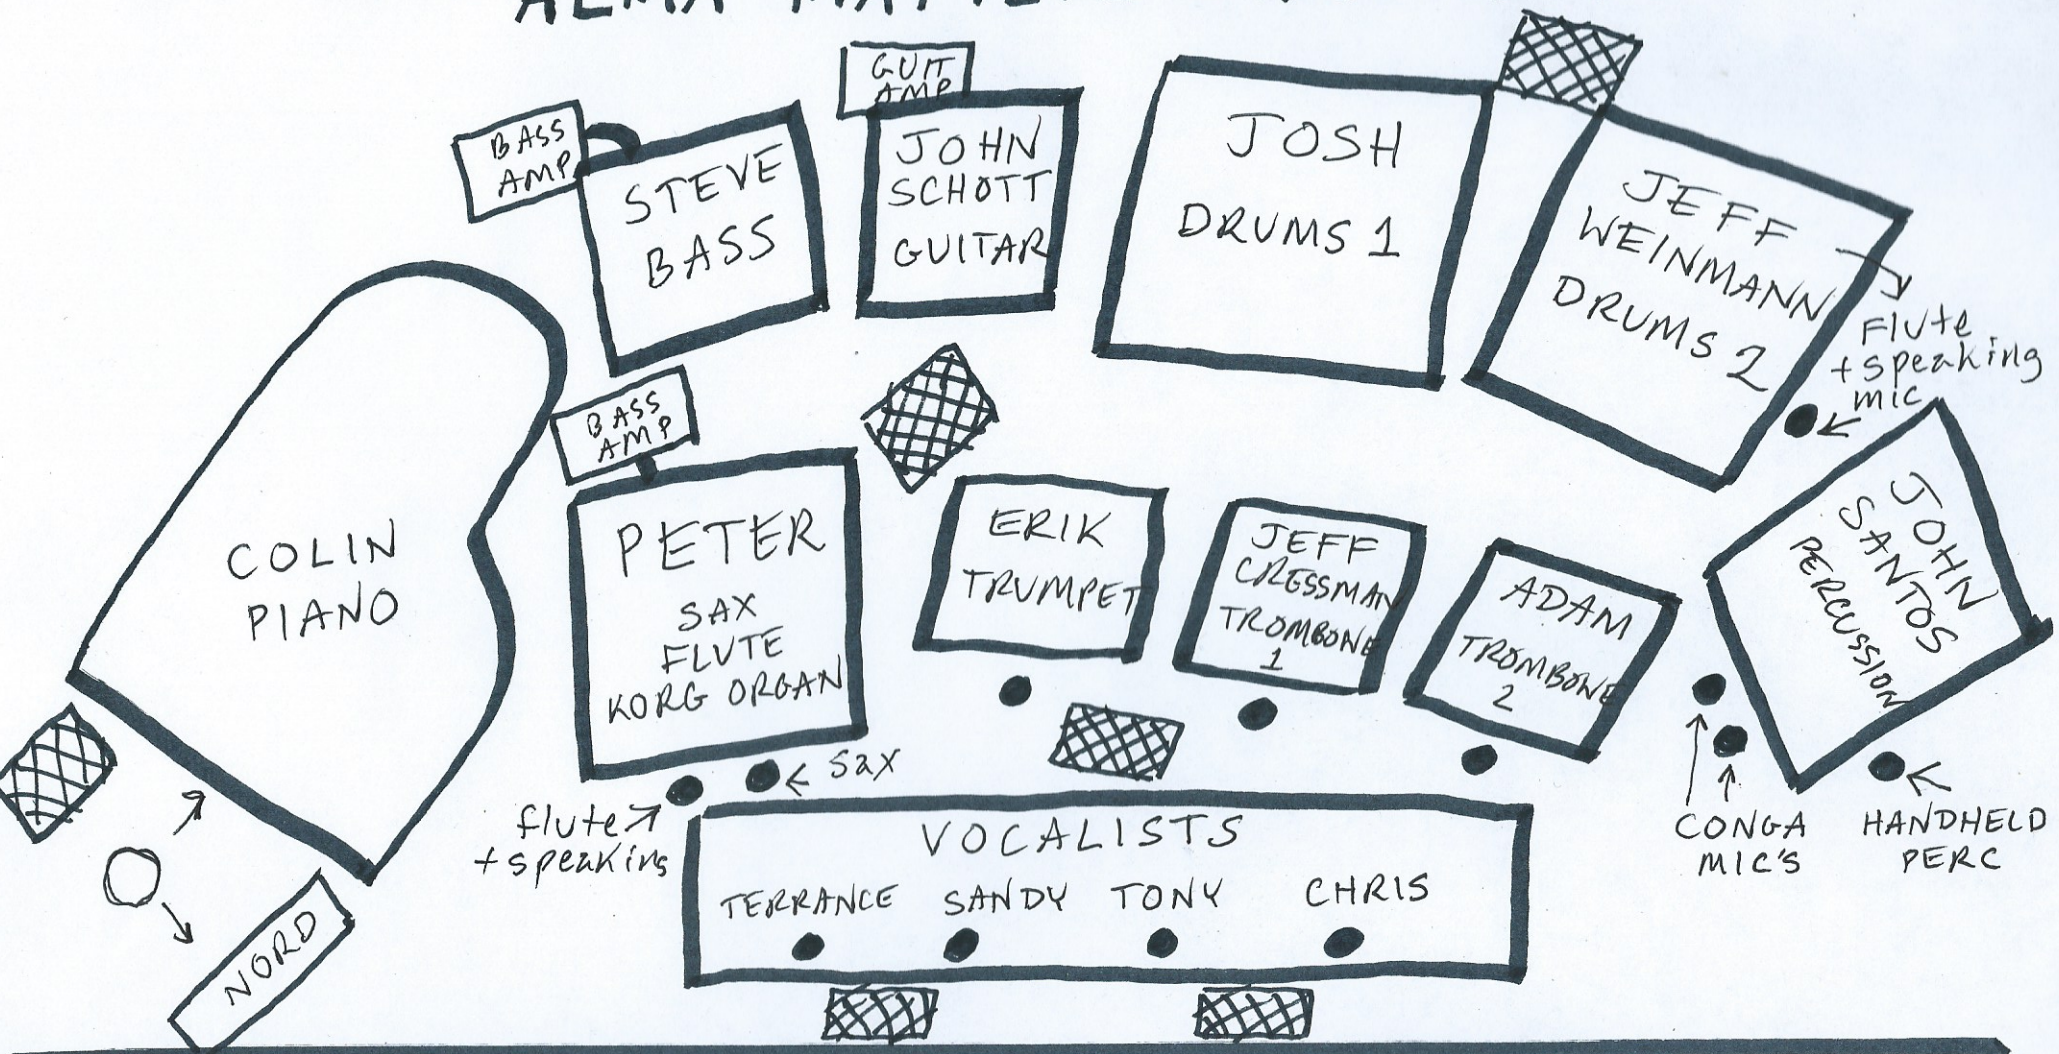 ALMA
GUIT
AMP
BASS
AMP
STEVE
BASS
JOHN
SCHOTT
GUITAR
JOSH
DRUMS 1
JEFF
WEINMANN
DRUMS 2
Flute
+ speaking
mic
BASS
AMP
COLIN
PIANO
PETER
SAX
FLUTE
KORG ORGAN
ERIK
TRUMPET
JEFF
CRESSMAN
TROMBONE
1
ADAM
TROMBONE
2
JOHN
SANTOS
PERCUSSION
sax
flute
+ speaking
CONGA
MIC'S
HANDHELD
PERC
VOCALISTS
TERRANCE SANDY TONY CHRIS
NORD